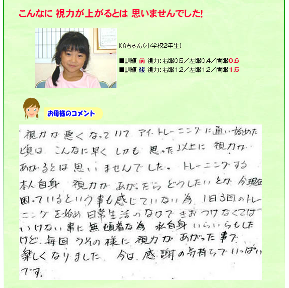 こんなに 視力が上がるとは 思いませんでした!
Knちゃん(小学校2年生)
■訓練 前 視力:右眼0.5/左眼0.4/両眼0.6
■訓練 後 視力:右眼1.2/左眼1.2/両眼1.5
お母様のコメント
視力が悪くなっていて アイ・トレーニングに通い始めた
頃は こんなに早く しかも 思った以上に 視力が
あがるとは思いませんでした。トレーニングする
本人自身 視力が あがったら どうしたい とか 今現在
困っているという事も感じていない為 1日3回のトレ
ーニングを始め 日常生活のなかで 気をつけなくては
いけない事に 無頓着な為 私自身 いらいらもした
けど、毎回 うなぎの様に 視力が あがった事で
楽しくなりました。今は、感謝の気持ちでいっぱい
です。